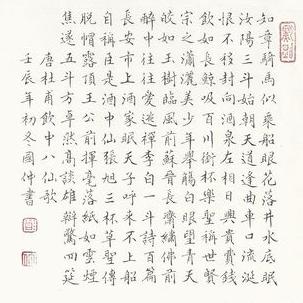 知章騎馬似乘船眼花落井水底眠
汝陽三斗始朝天道逢曲車口流涎
恨不移封向酒泉左相日興費錢
飲如長鯨吸百川銜杯樂聖稱世賢
宗之瀟灑美少年舉觴白眼望青天
皎如玉樹臨風前蘇晉長齋繡佛前
醉中往往愛逃禪李白一斗詩百篇
長安市上酒家眠天子呼來不上船
自稱臣是酒中仙張旭三杯草聖傳
脫帽露頂王公前揮毫落紙如雲煙
焦遂五斗方卓然高談雄辯驚四筵
唐杜甫飲中八仙歌
壬辰年初冬國仲書